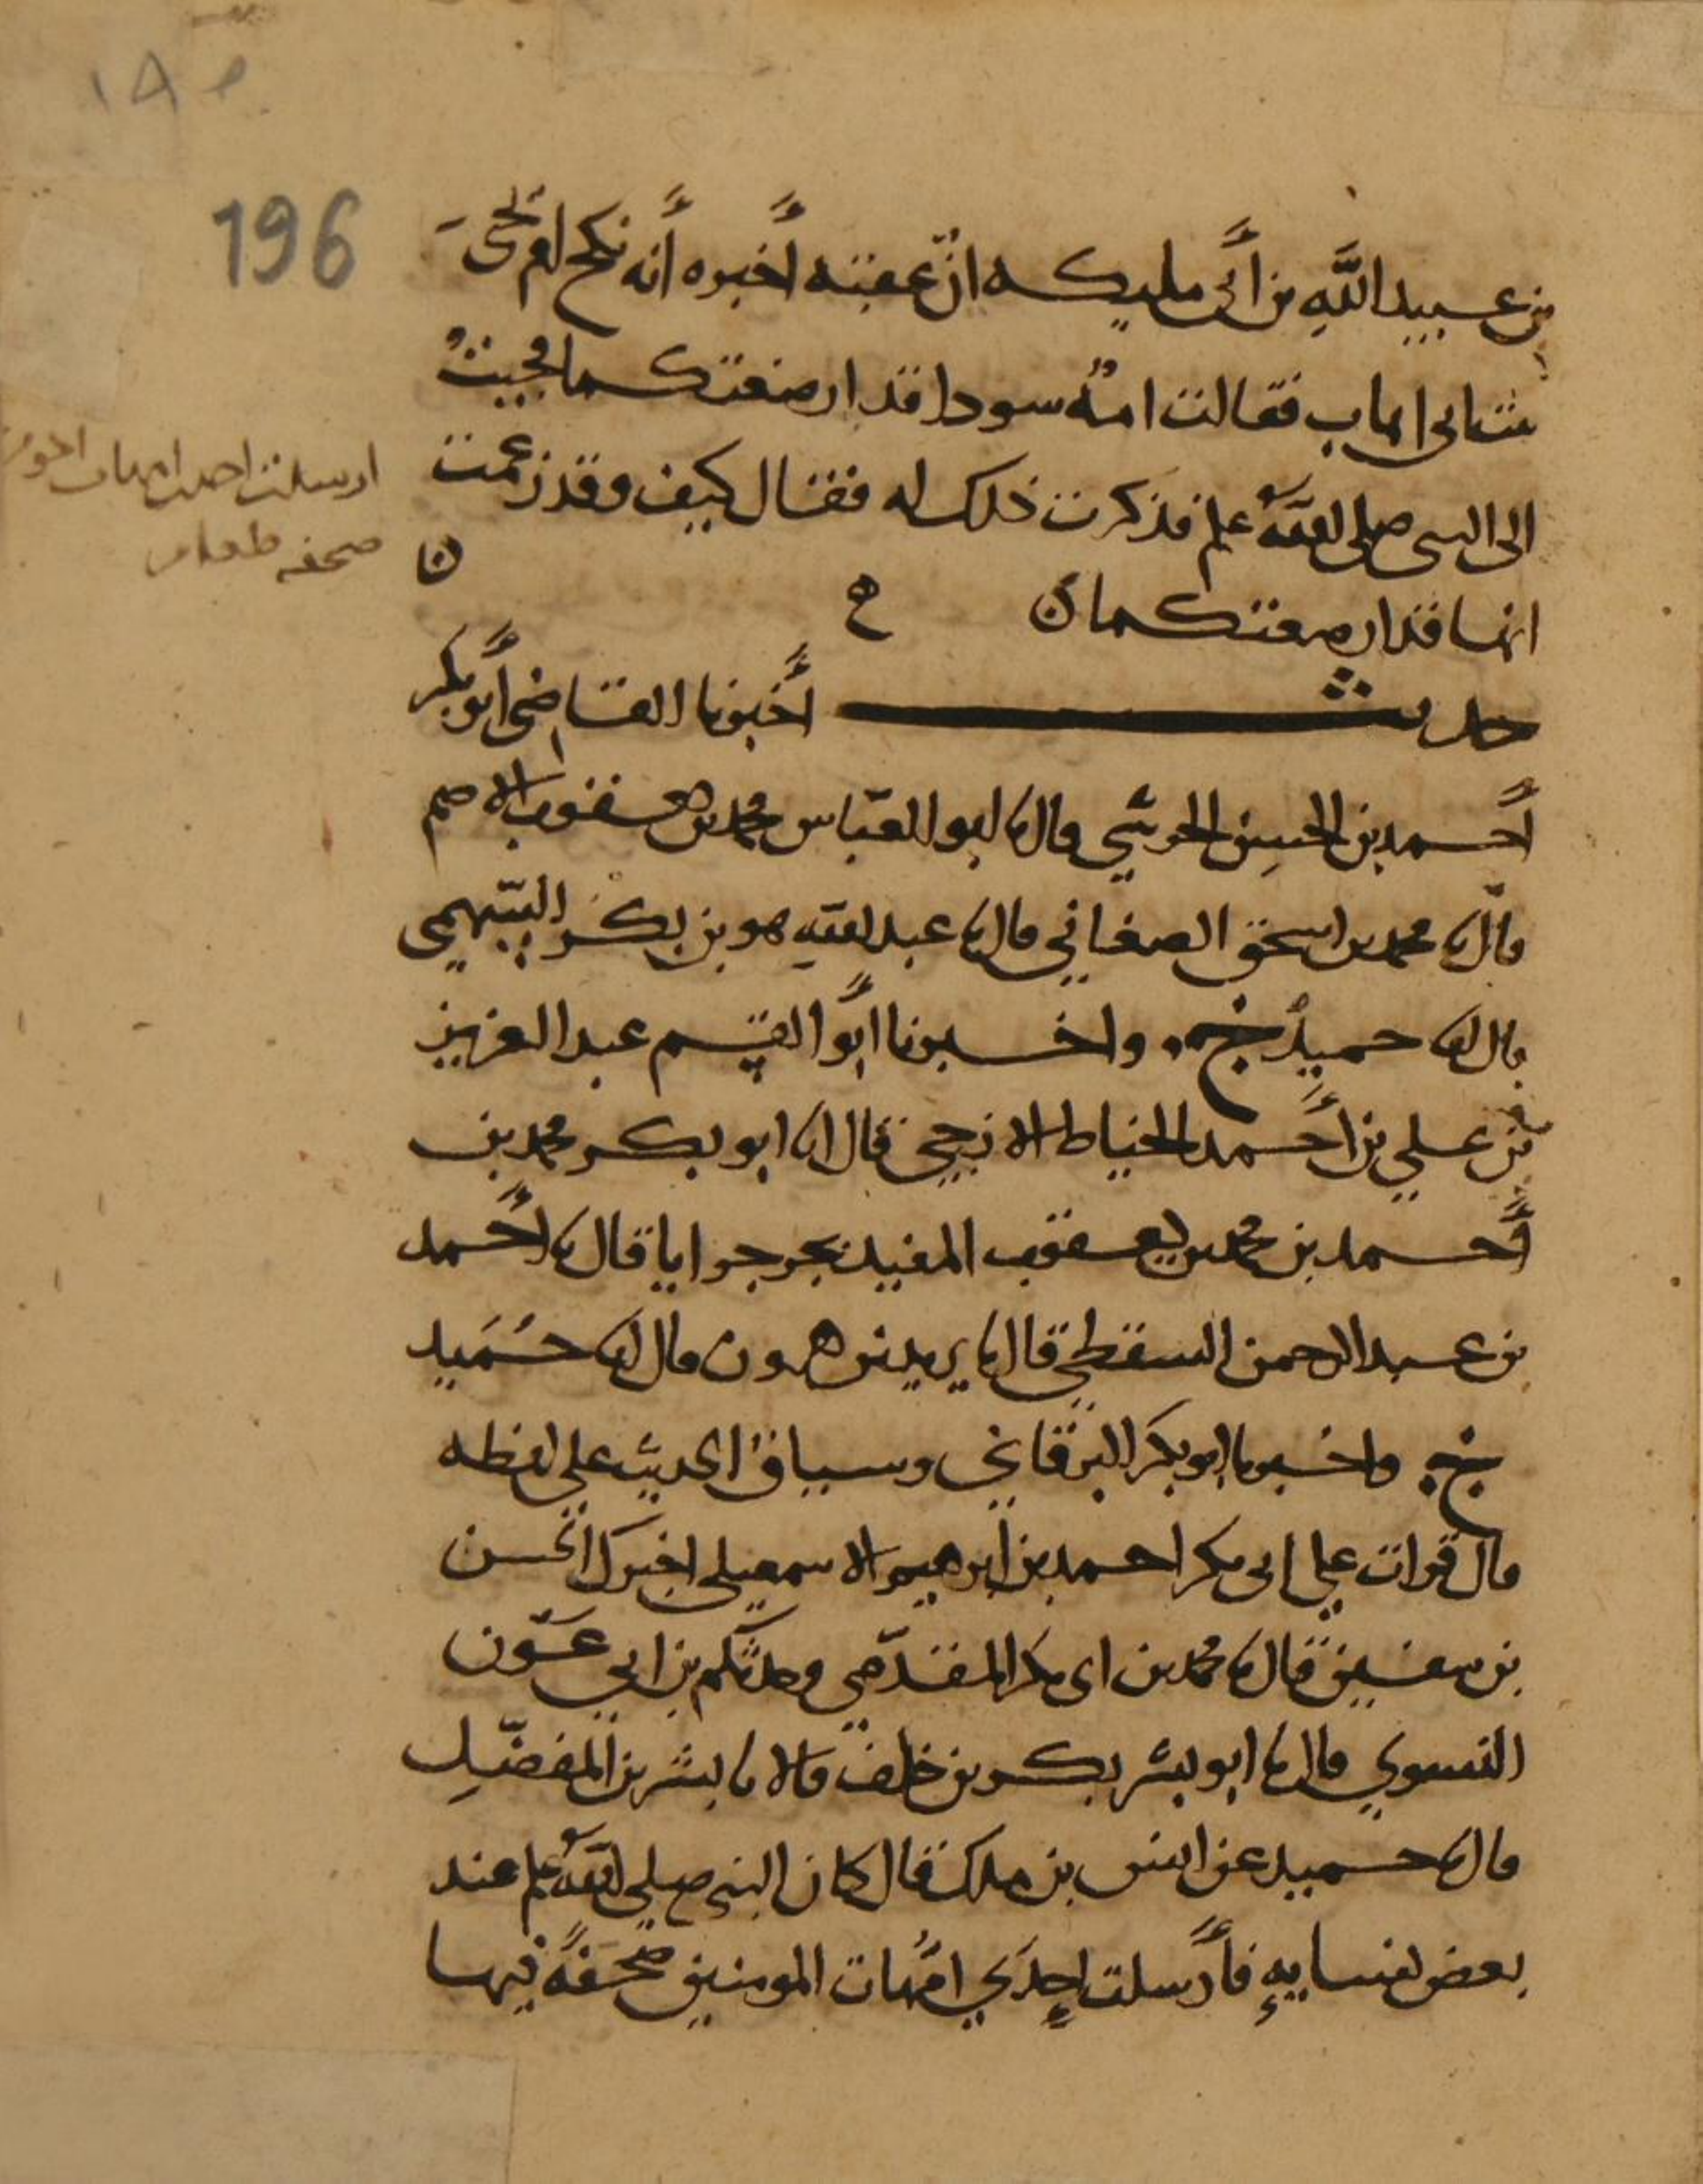 ١٨٥
196
بن عبيد الله بن أبي مليكه انّ عقبه أخبره أنه نكح ام يحيى
بنت ابي اهاب فقالت امةٌ سودا قد ارضعتكما فجيتُ
الى النبي صلى الله علىه وسلم فذكرت ذلك له فقال كيف وقد زعمت
انها قد ارضعتكما ن
ارسلت احدى امهات المومنين
صحفه طعام
حديث أخبرنا القاضي أبو بكر
أحمد بن الحسن الحرشي قال نا ابو العبّاس محمد بن يعقوب الاصم
قال نا محمد بن اسحق الصغاني قال نا عبد الله هو بن بكر السّهمي
قال نا حميدٌ ح واخبرنا ابُو القسم عبد العزيز
بن علي بن أحمد الخياط الازجي قال انا ابو بكر محمد بن
أحمد بن محمد بن يعقوب المفيد بجرجرايا قال نا أحمد
بن عبد الرحمن السقطي قال نا يزيد بن هرون قال انا حُمَيد
ح واخبرنا ابو بكر البرقاني وسياقُ الحديث على لفظه
قال قرات على ابي بكر احمد بن ابرهيم الاسمعيلي اخبرك الحسن
بن سفين قال نا محمد بن ابي بكر المقدّمي وحدثكم بن ابي عَون
النسوي قال نا ابو بشر بكر بن خلف قالا نا بشر بن المفضّلِ
قال نا حميد عن انس بن ملك قال كان النبي صلى الله علىه وسلم عند
بعض نسايهِ فأرسلت اِحدَي امّهات المومنين صَحفَةً فيها